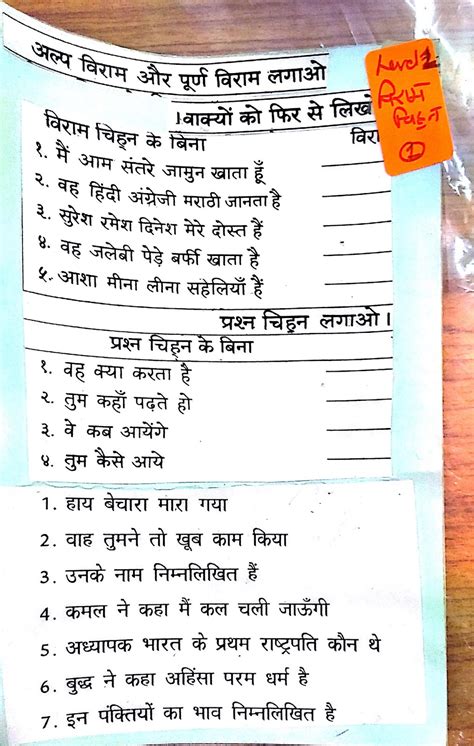 अल्प विराम और पूर्ण विराम लगाओ
।वाक्यों को फिर से लिखो
विराम चिह्न के बिना
विरा
१. मैं आम संतरे जामुन खाता हूँ
२. वह हिंदी अंग्रेजी मराठी जानता है
३. सुरेश रमेश दिनेश मेरे दोस्त हैं
४. वह जलेबी पेड़े बर्फी खाता है
५. आशा मीना लीना सहेलियाँ हैं
प्रश्न चिह्न लगाओ।
प्रश्न चिह्न के बिना
१. वह क्या करता है
२. तुम कहाँ पढ़ते हो
३. वे कब आयेंगे
४. तुम कैसे आये
1. हाय बेचारा मारा गया
2. वाह तुमने तो खूब काम किया
3. उनके नाम निम्नलिखित हैं
4. कमल ने कहा मैं कल चली जाऊँगी
5. अध्यापक भारत के प्रथम राष्ट्रपति कौन थे
6. बुद्ध ने कहा अहिंसा परम धर्म है
7. इन पंक्तियों का भाव निम्नलिखित है
Level
विराम
चिह्न
1